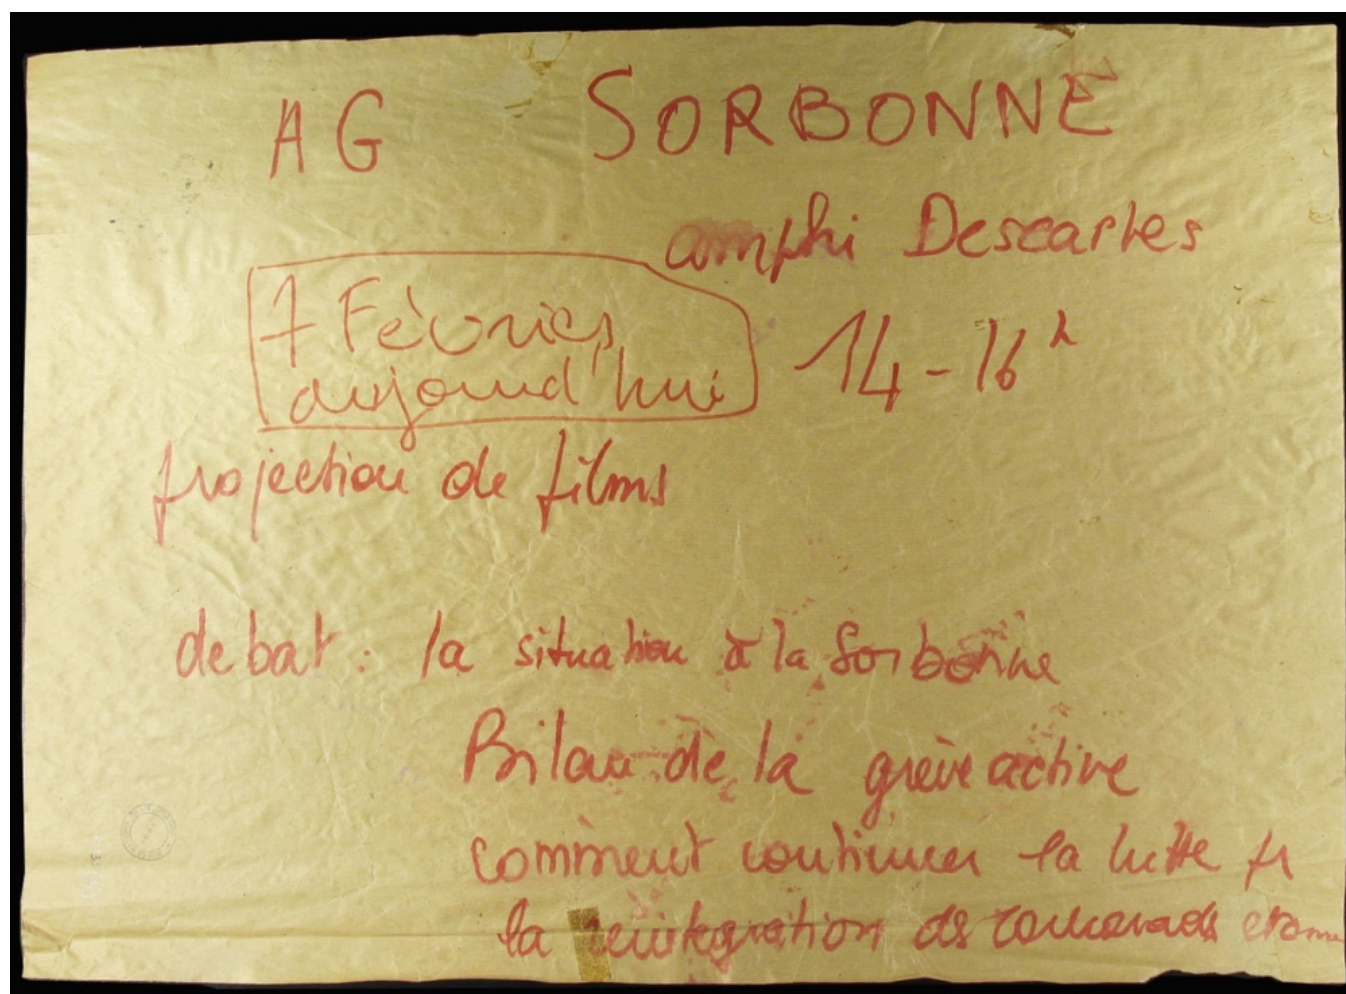 AG SORBONNE
amphi Descartes
7 Février
aujourd'hui
14-16h
projection de films
debat : la situation à la Sorbonne
Bilan de la grève active
comment continuer la lutte pr
la reintegration ds camarads